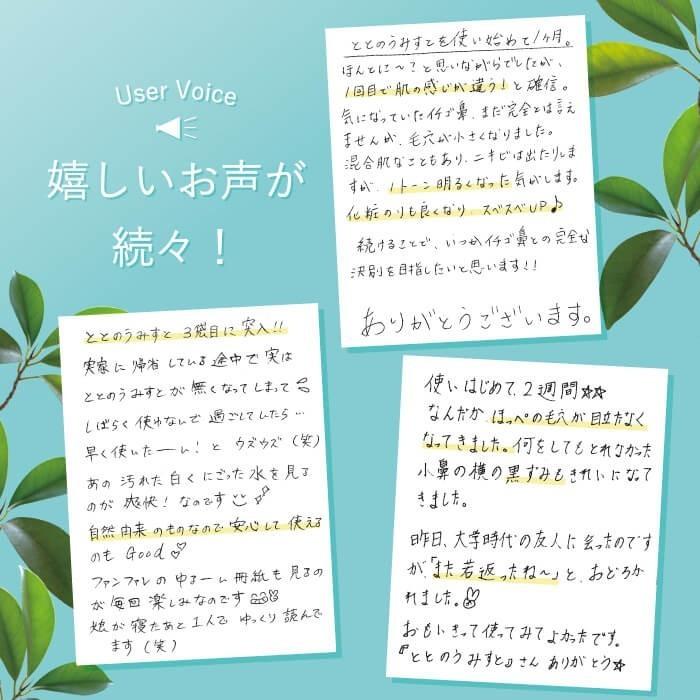 User Voice
嬉しいお声が
続々！
ととのうみすとを使い始めて1ヶ月。
ほんとに〜？と思いながらでしたが、
1回目で肌の感じが違う！と確信。
気になっていたイチゴ鼻、まだ完全とは言え
ませんが、毛穴が小さくなりました。
混合肌なこともあり、ニキビは出たりしま
すが、1トーン明るくなった気がします。
化粧のりも良くなり、スベスベUP♪
続けることで、いつかイチゴ鼻との完全な
決別を目指したいと思います！！
ありがとうございます。
ととのうみすと3袋目に突入！！
実家に帰省している途中で実は
ととのうみすとが無くなってしまって
しばらく使わないで過ごしてしたら…
早く使いたーーい！とウズウズ（笑）
あの汚れた白くにごった水を見る
のが爽快！なのです
自然由来のものなので安心して使える
のもGood♡
ファンファレのゆるーい冊紙も見るの
が毎回楽しみなのです
娘が寝たあと1人でゆっくり読んで
ます（笑）
使いはじめて、2週間☆☆
なんだか、ほっぺの毛穴が目立たなく
なってきました。何をしてもとれなかった
小鼻の横の黒ずみもきれいになって
きました。
昨日、大学時代の友人に会ったのです
が、「また若返ったね〜」と、おどろか
れました。
おもいきって使ってみてよかったです。
『ととのうみすと』さんありがとう☆